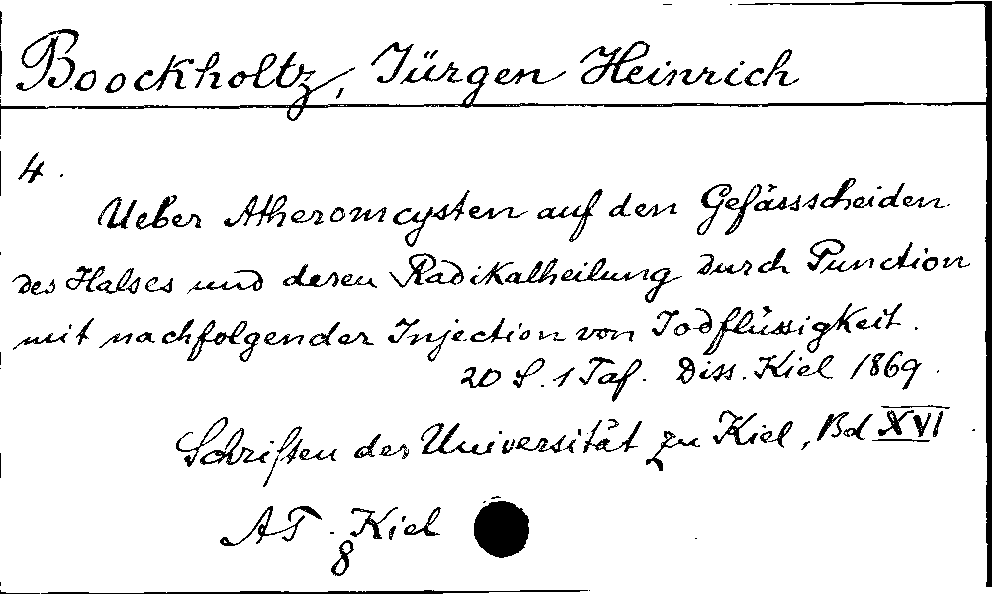 Boockholtz, Jürgen Heinrich
4.
Ueber Atheromcysten auf den Gefässscheiden
des Halses und deren Radikalheilung durch Punction
mit nachfolgender Injection von Jodflüssigkeit.
20 S. 1 Taf. Diss. Kiel 1869.
Schriften der Universität zu Kiel, Bd XVI.
AT. Kiel
8